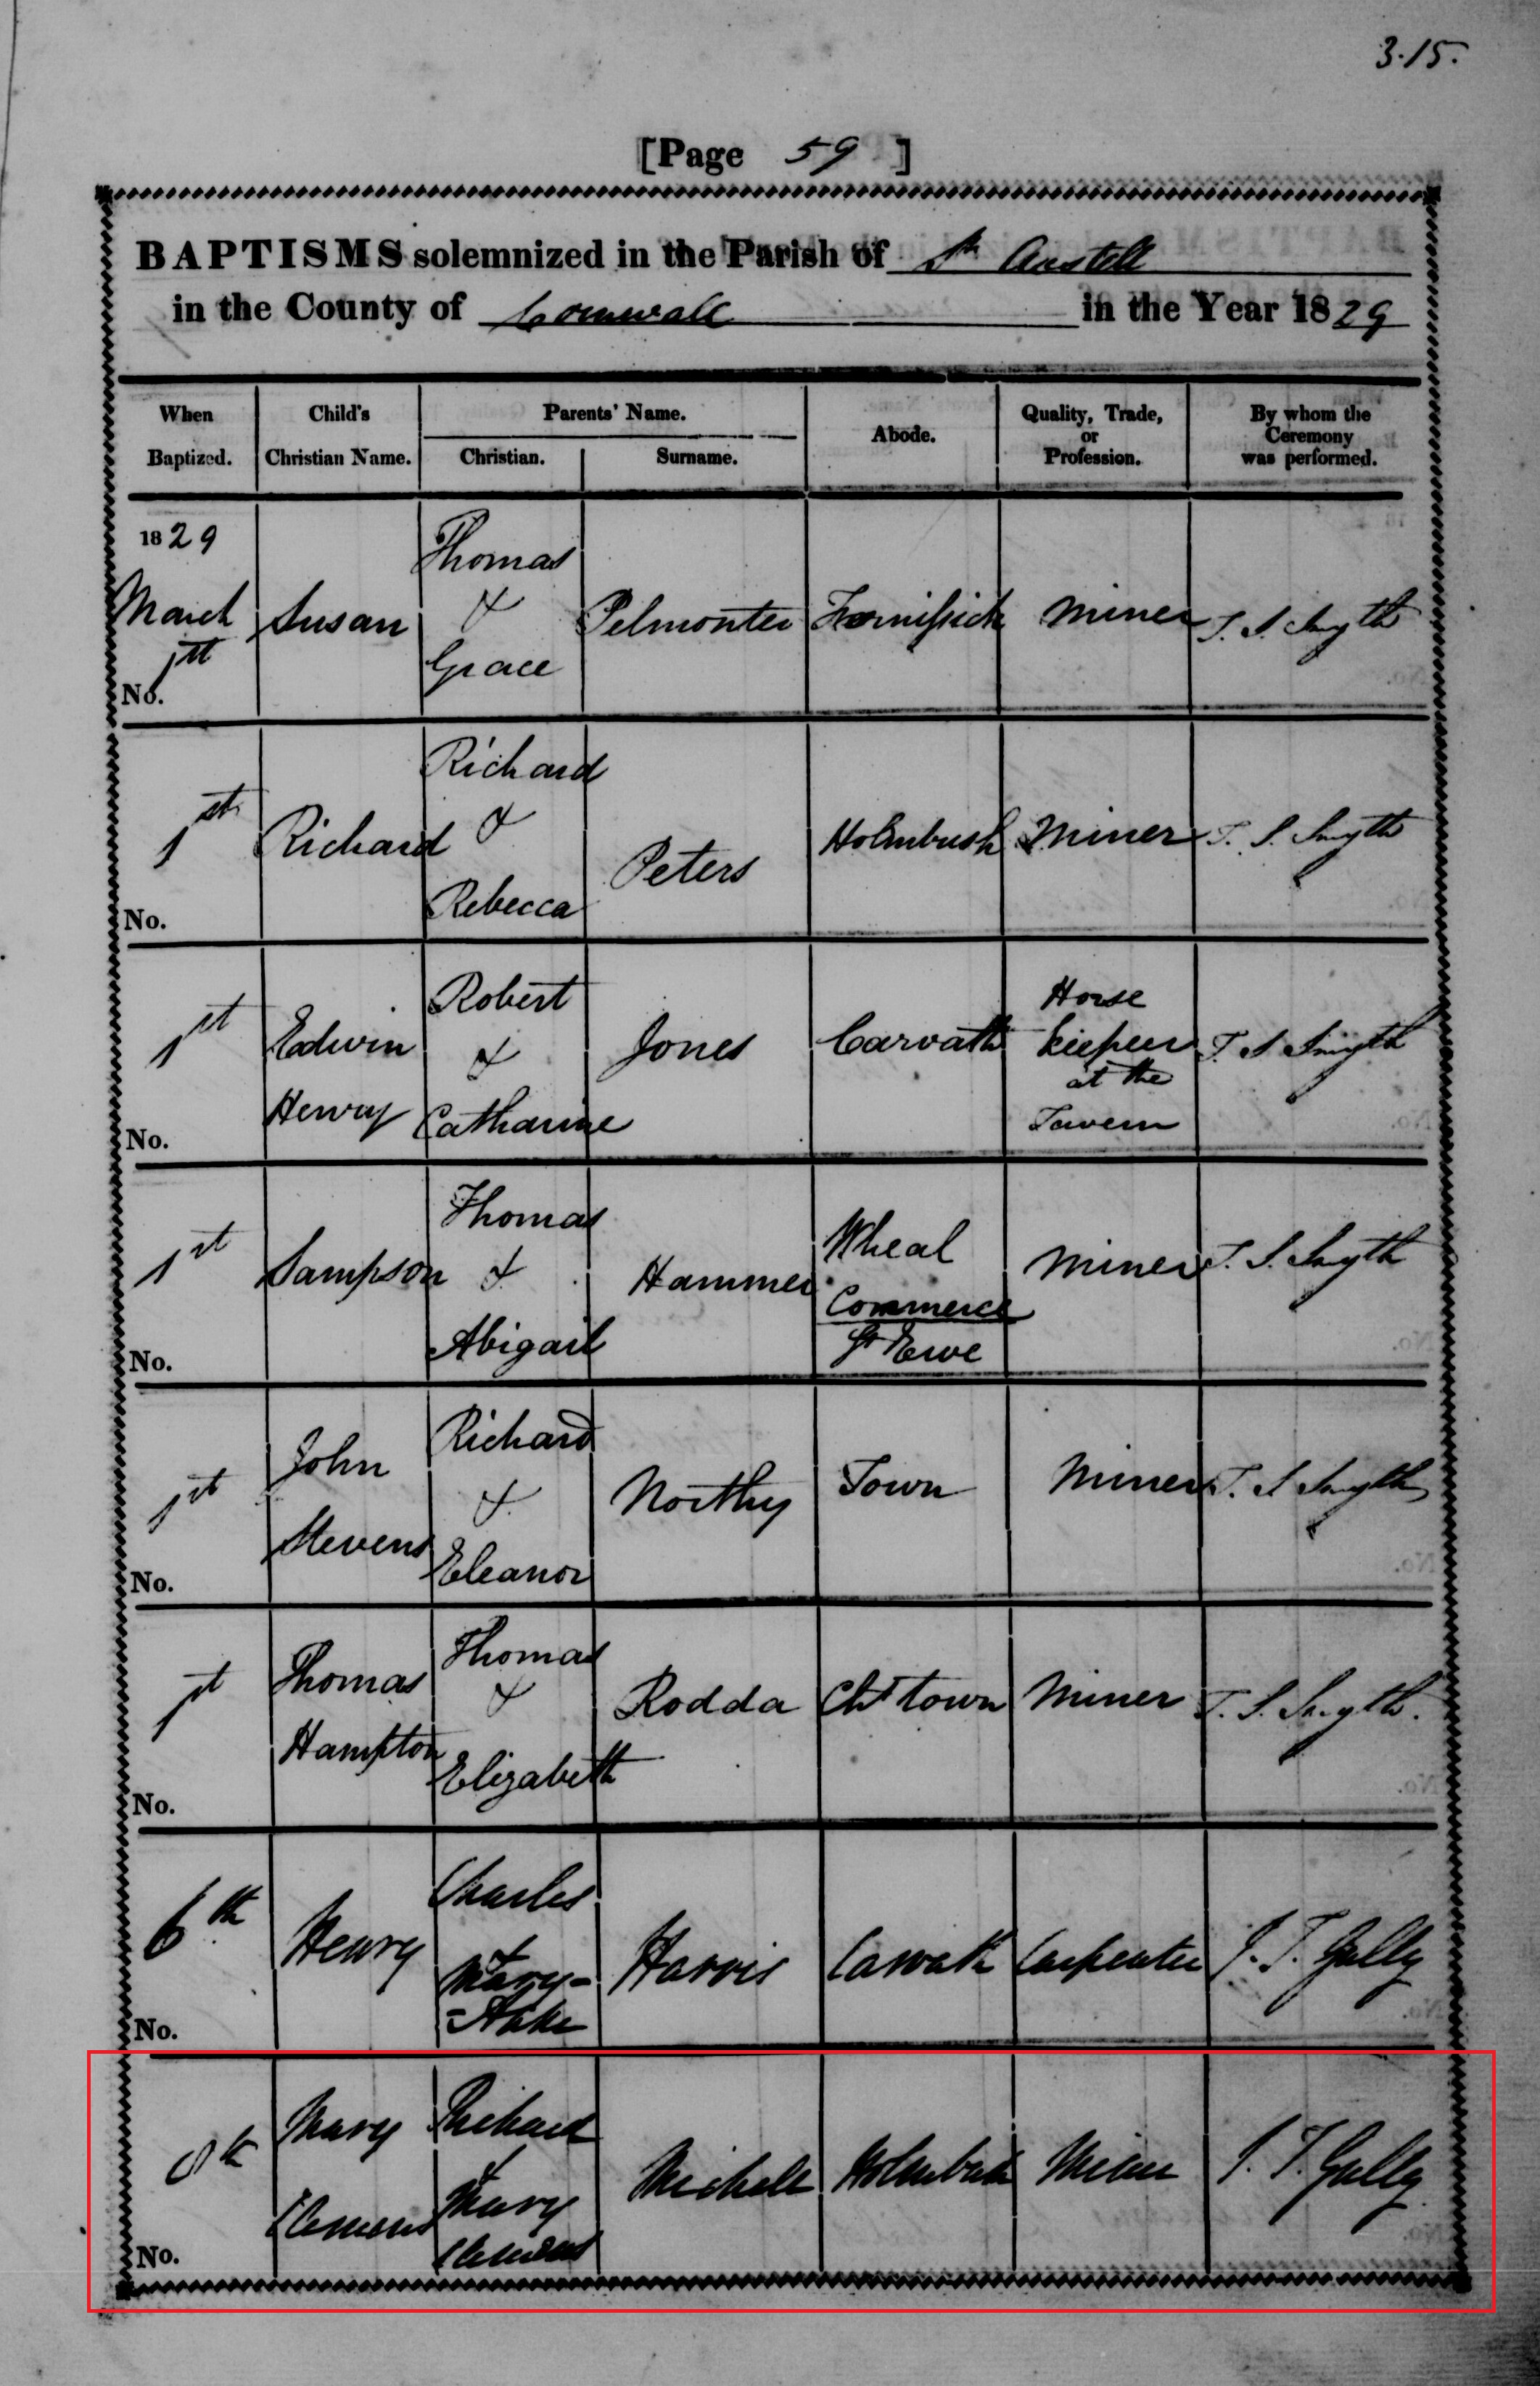 3.15.
[Page 59]
BAPTISMS solemnized in the Parish of St Austell
in the County of Cornwall in the Year 1829
When Baptized. Child's Christian Name. Parents' Name. Christian. Surname. Abode. Quality, Trade, or Profession. By whom the Ceremony was performed.
1829
March 1st No. Susan Thomas & Grace Pelmonter miner T. S. Smyth
1st No. Richard Richard & Rebecca Peters Holmbush Miner T. S. Smyth
1st No. Edwin Henry Robert & Catharine Jones Carvath Horse keeper at the Tavern T. S. Smyth
1st No. Sampson Thomas & Abigail Hammer Wheal Commerce St Ewe Miner T. S. Smyth
1st No. John Stevens Richard & Eleanor Northey Town Miner T. S. Smyth
1st No. Thomas Hampton Thomas & Elizabeth Rodda Chstown Miner T. S. Smyth.
6th No. Henry Charles & Mary= Harris Carvath Carpenter J. T. Gully
8th No. Mary Clemens Richard & Mary Clemens Michell Holmbush Miner J. T. Gully